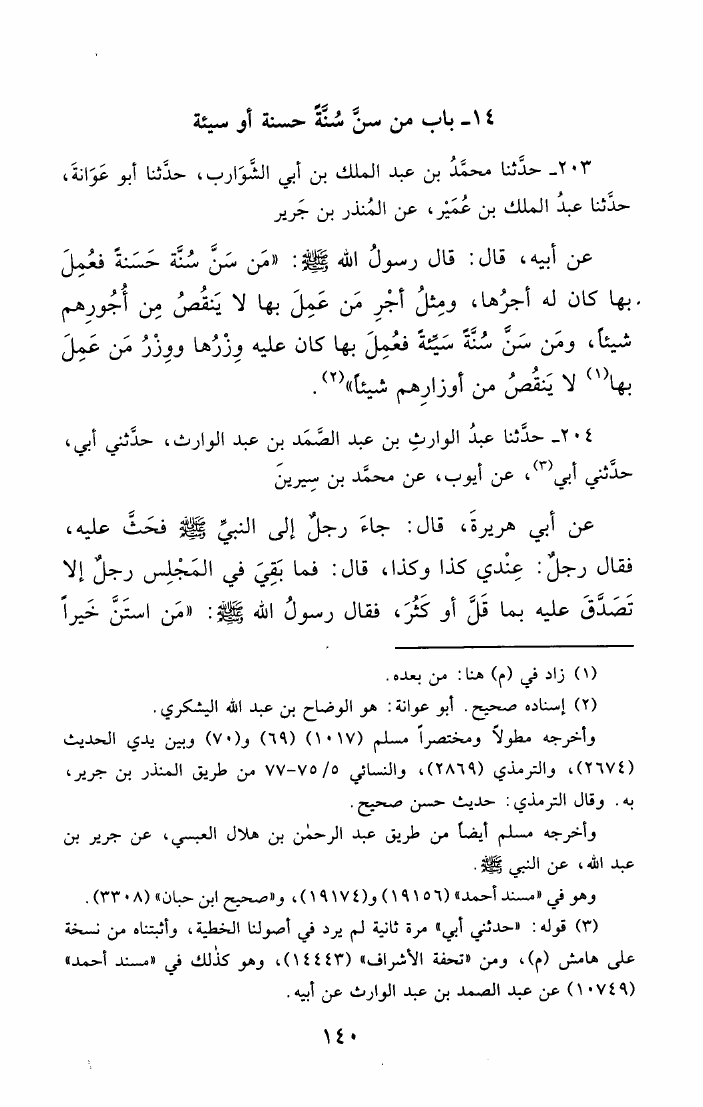 ١٤ـ باب من سنَّ سُنَّةً حسنة أو سيئة
٢٠٣ـ حدَّثنا محمَّدُ بن عبد الملك بن أبي الشَّوَارب، حدَّثنا أبو عَوَانةَ،
حدَّثنا عبدُ الملك بن عُمَيْر، عن المُنذر بن جَرير
عن أبيه، قال: قال رسولُ الله ﷺ: «مَن سَنَّ سُنَّة حَسَنةً فعُمِلَ
بها كان له أجرُها، ومِثلُ أجْرِ مَن عَمِلَ بها لا يَنقُصُ مِن أُجُورِهم
شيئاً، ومَن سَنَّ سُنَّةً سَيِّئةً فعُمِلَ بها كان عليه وِزْرُها ووِزْرُ مَن عَمِلَ
بها(١) لا يَنقُصُ من أوزارِهم شيئاً»(٢).
٢٠٤ـ حدَّثنا عبدُ الوارثِ بن عبد الصَّمَد بن عبد الوارث، حدَّثني أبي،
حدَّثني أبي(٣)، عن أيوب، عن محمَّد بن سِيرينَ
عن أبي هريرةَ، قال: جاءَ رجلٌ إلى النبيِّ ﷺ فحَثَّ عليه،
فقال رجلٌ: عِنْدي كذا وكذا، قال: فما بَقِيَ في المَجْلِس رجلٌ إلا
تَصَدَّقَ عليه بما قَلَّ أو كَثُرَ، فقال رسولُ الله ﷺ: «مَن استَنَّ خَيراً
(١) زاد في (م) هنا: من بعده.
(٢) إسناده صحيح. أبو عوانة: هو الوضاح بن عبد الله اليشكري.
وأخرجه مطولاً ومختصراً مسلم (١٠١٧) (٦٩) و(٧٠) وبين يدي الحديث
(٢٦٧٤)، والترمذي (٢٨٦٩)، والنسائي ٥/ ٧٥-٧٧ من طريق المنذر بن جرير،
به. وقال الترمذي: حديث حسن صحيح.
وأخرجه مسلم أيضاً من طريق عبد الرحمٰن بن هلال العبسي، عن جرير بن
عبد الله، عن النبي ﷺ.
وهو في «مسند أحمد» (١٩١٥٦) و(١٩١٧٤)، و«صحيح ابن حبان» (٣٣٠٨).
(٣) قوله: «حدثني أبي» مرة ثانية لم يرد في أصولنا الخطية، وأثبتناه من نسخة
على هامش (م)، ومن «تحفة الأشراف» (١٤٤٤٣)، وهو كذٰلك في «مسند أحمد»
(١٠٧٤٩) عن عبد الصمد بن عبد الوارث عن أبيه.
١٤٠